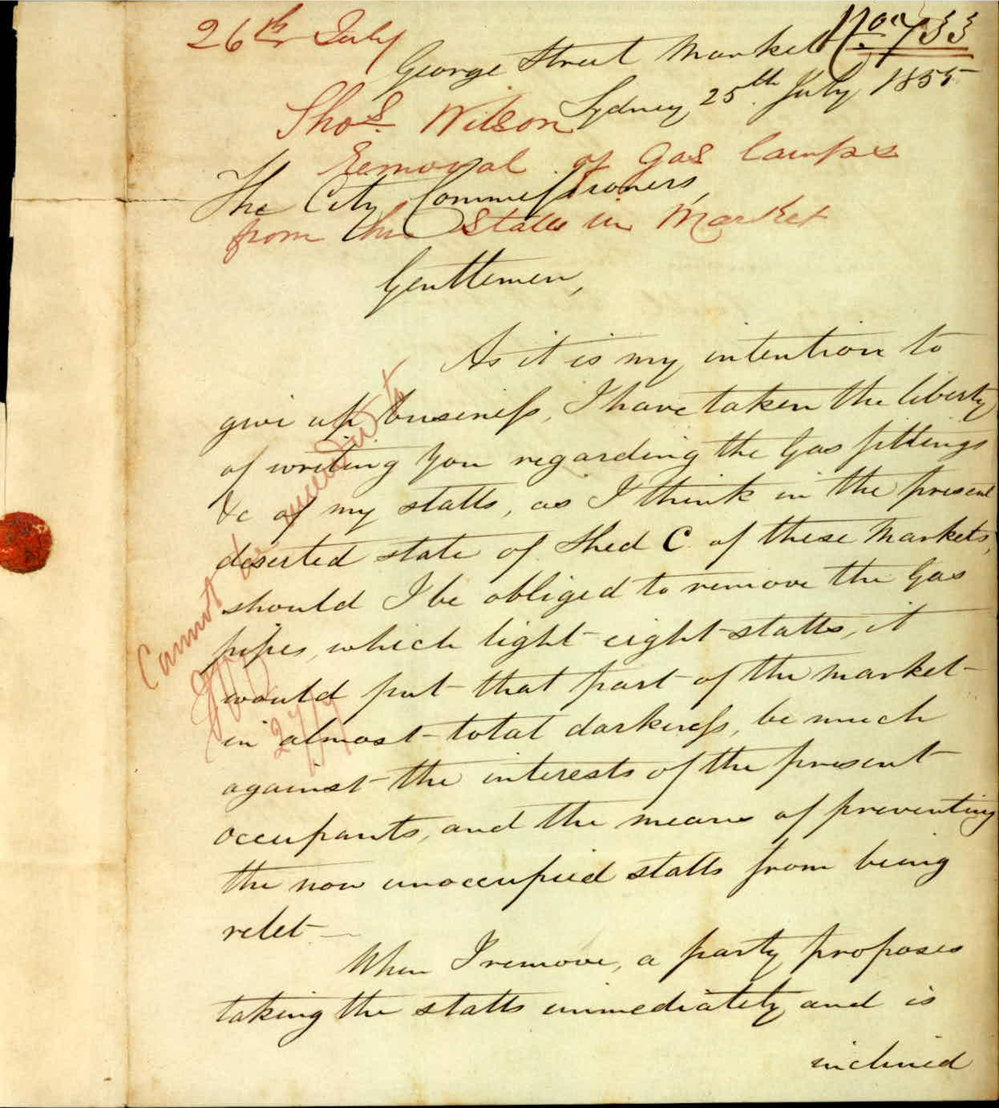 No. 733
26th July
George Street Markets
Sydney 25th July 1855
Thos. Wilson
Removal of Gas lamps
The City Commissioners,
from the Stalls in Market
Gentlemen,
As it is my intention to
give up business, I have taken the liberty
of writing you regarding the Gas fittings
&c of my stalls, as I think in the present
deserted state of Shed C of these Markets,
should I be obliged to remove the Gas
pipes, which light eight stalls, it
would put that part of the market
in almost total darkness, be much
against the interests of the present
occupants, and the means of preventing
the now unoccupied stalls from being
relet
When I remove, a party proposes
taking the stalls immediately and is
inclined
Cannot be acceeded to
27/7